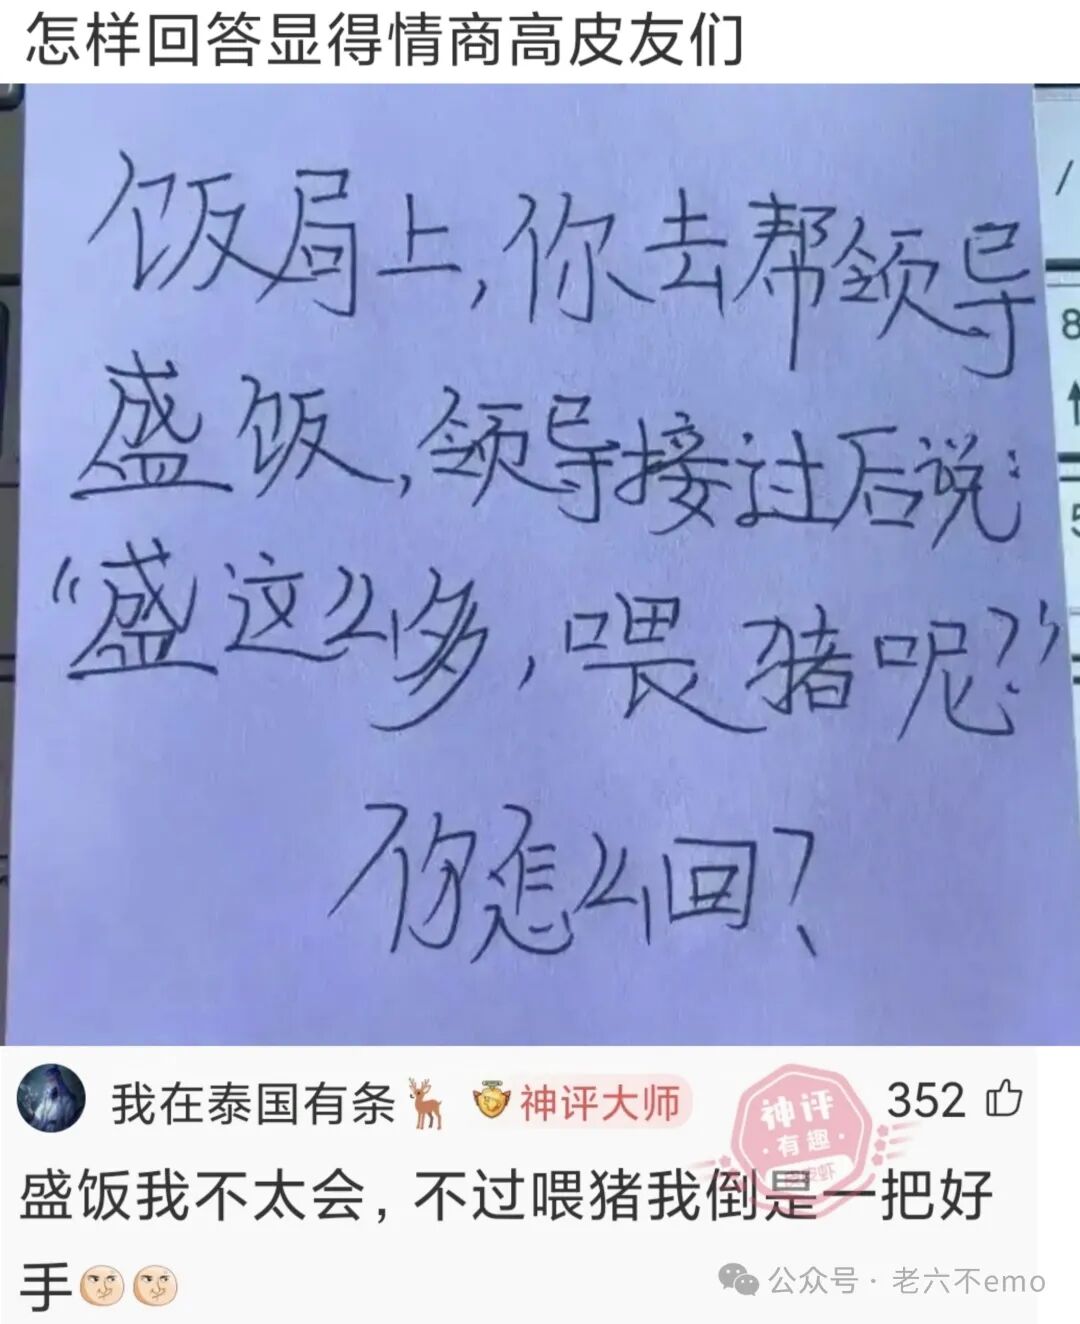 怎样回答显得情商高皮友们
饭局上,你去帮领导
盛饭,领导接过后说:
“盛这么多,喂猪呢?”
你怎么回?
我在泰国有条🦌 神评大师
神评
·有趣·
皮皮虾
352
盛饭我不太会，不过喂猪我倒是一把好
手
公众号·老六不emo
/
8
5